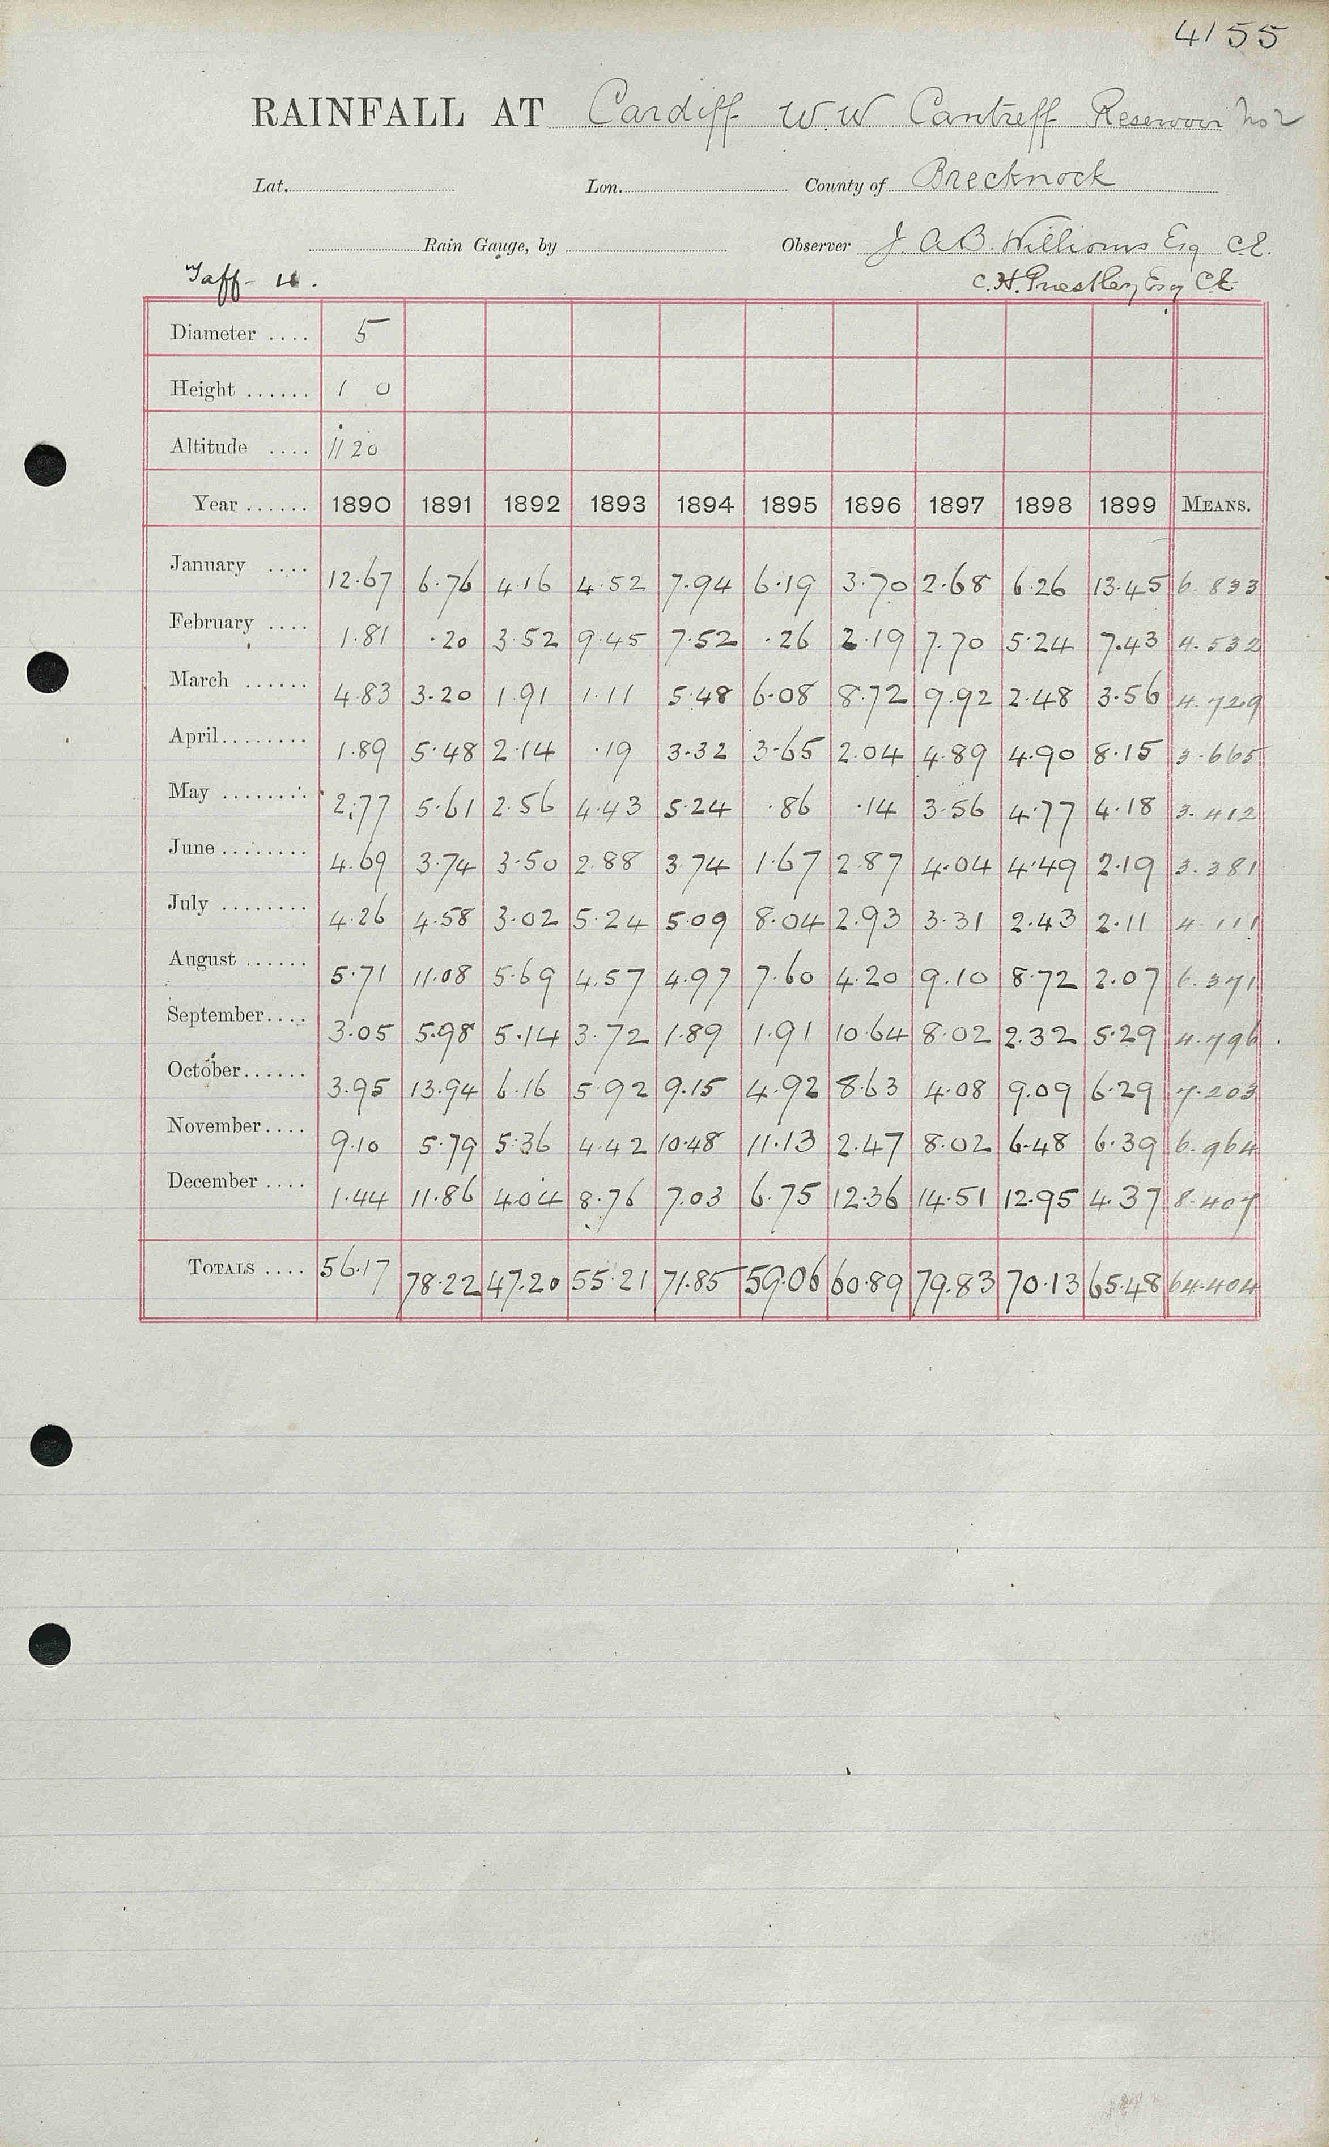 4155
RAINFALL AT Cardiff W.W Cantreff Reservoir No 2
Lat. Lon. County of Brecknock
Rain Gauge, by Observer J. A B. Williams Esq C.E.
Taff - 4. C. H. Priestley Esq C.E.
Diameter .... 5
Height ...... 1 0
Altitude .... 1120
Year ...... 1890 1891 1892 1893 1894 1895 1896 1897 1898 1899 MEANS.
January .... 12.67 6.76 4.16 4.52 7.94 6.19 3.70 2.68 6.26 13.45 6.833
February .... 1.81 .20 3.52 9.45 7.52 .26 2.19 7.70 5.24 7.43 4.532
March ...... 4.83 3.20 1.91 1.11 5.48 6.08 8.72 9.92 2.48 3.56 4.729
April........ 1.89 5.48 2.14 .19 3.32 3.65 2.04 4.89 4.90 8.15 3.665
May ........ 2.77 5.61 2.56 4.43 5.24 .86 .14 3.56 4.77 4.18 3.412
June ........ 4.69 3.74 3.50 2.88 3.74 1.67 2.87 4.04 4.49 2.19 3.381
July ........ 4.26 4.58 3.02 5.24 5.09 8.04 2.93 3.31 2.43 2.11 4.111
August ...... 5.71 11.08 5.69 4.57 4.97 7.60 4.20 9.10 8.72 2.07 6.371
September.... 3.05 5.98 5.14 3.72 1.89 1.91 10.64 8.02 2.32 5.29 4.796
October...... 3.95 13.94 6.16 5.92 9.15 4.92 8.63 4.08 9.09 6.29 7.203
November.... 9.10 5.79 5.36 4.42 10.48 11.13 2.47 8.02 6.48 6.39 6.964
December .... 1.44 11.86 4.04 8.76 7.03 6.75 12.36 14.51 12.95 4.37 8.407
TOTALS .... 56.17 78.22 47.20 55.21 71.85 59.06 60.89 79.83 70.13 65.48 64.404